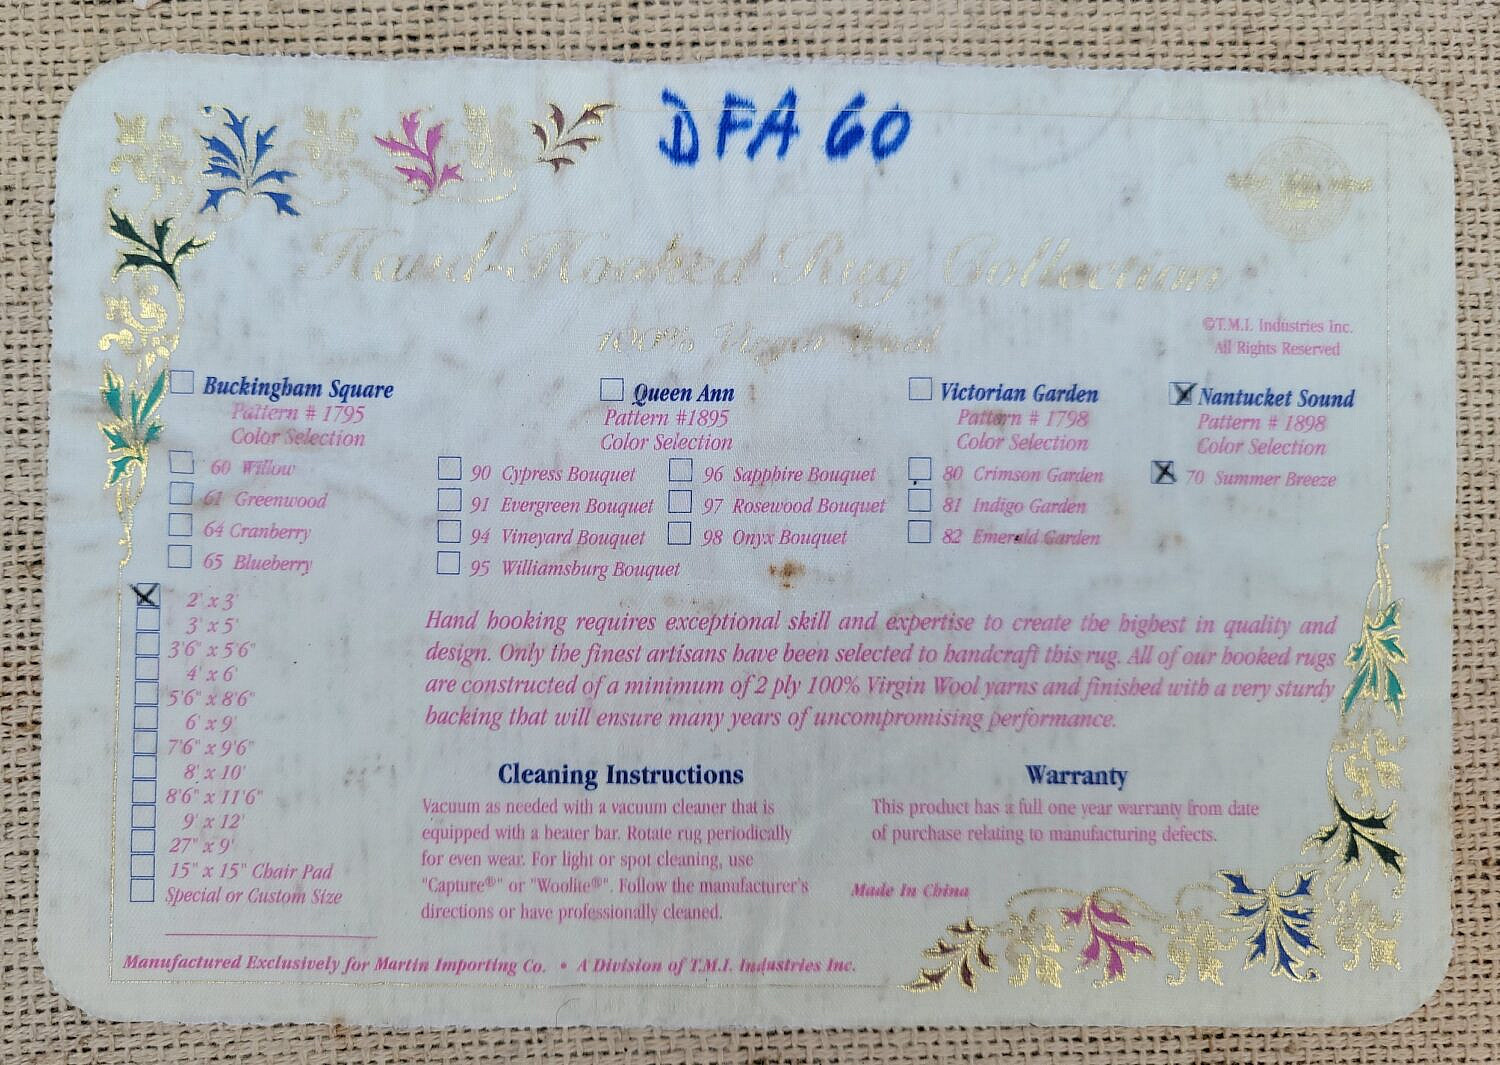 DFA 60
Hand-Hooked Rug Collection
100% Virgin Wool
©T.M.I. Industries Inc.
All Rights Reserved
Buckingham Square
Pattern # 1795
Color Selection
60 Willow
61 Greenwood
64 Cranberry
65 Blueberry
Queen Ann
Pattern #1895
Color Selection
90 Cypress Bouquet
91 Evergreen Bouquet
94 Vineyard Bouquet
95 Williamsburg Bouquet
96 Sapphire Bouquet
97 Rosewood Bouquet
98 Onyx Bouquet
Victorian Garden
Pattern # 1798
Color Selection
80 Crimson Garden
81 Indigo Garden
82 Emerald Garden
Nantucket Sound
Pattern # 1898
Color Selection
70 Summer Breeze
2' x 3'
3' x 5'
3'6" x 5'6"
4' x 6'
5'6" x 8'6"
6' x 9'
7'6" x 9'6"
8' x 10'
8'6" x 11'6"
9' x 12'
27" x 9'
15" x 15" Chair Pad
Special or Custom Size
Hand hooking requires exceptional skill and expertise to create the highest in quality and
design. Only the finest artisans have been selected to handcraft this rug. All of our hooked rugs
are constructed of a minimum of 2 ply 100% Virgin Wool yarns and finished with a very sturdy
backing that will ensure many years of uncompromising performance.
Cleaning Instructions
Vacuum as needed with a vacuum cleaner that is
equipped with a beater bar. Rotate rug periodically
for even wear. For light or spot cleaning, use
"Capture®" or "Woolite®". Follow the manufacturer's
directions or have professionally cleaned.
Warranty
This product has a full one year warranty from date
of purchase relating to manufacturing defects.
Made In China
Manufactured Exclusively for Martin Importing Co. • A Division of T.M.I. Industries Inc.